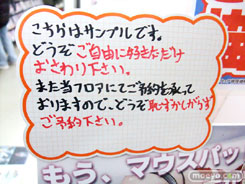 こちらはサンプルです。
どうぞご自由に好きなだけ
おさわり下さい。
また当フロアにてご予約を承って
おりますので、どうぞ恥ずかしがらず
ご予約下さい。
もう、マウスパッ
moeyo.com